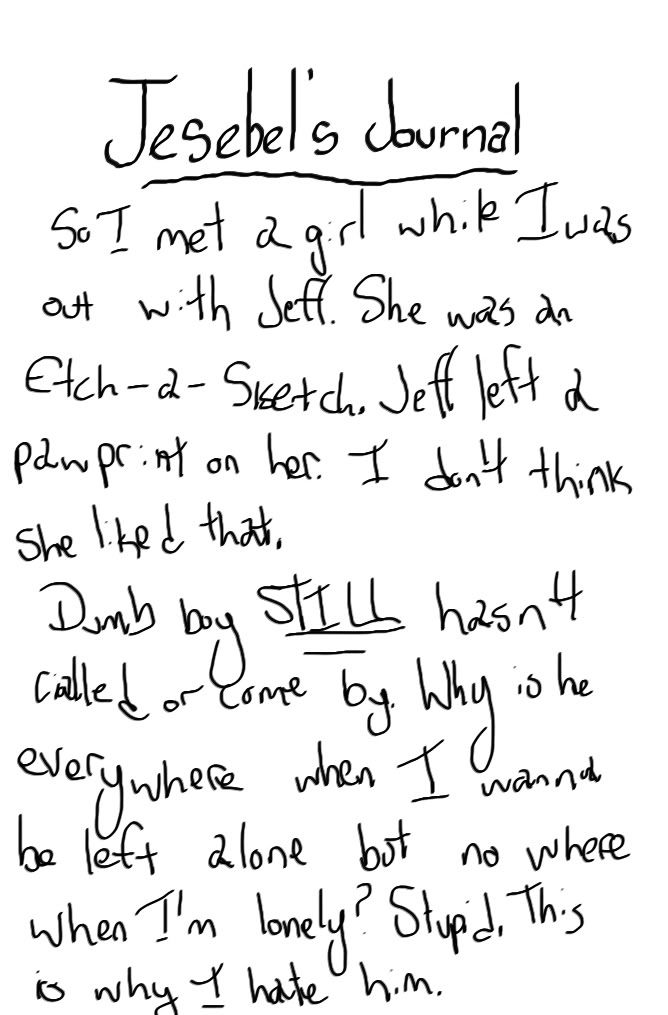 Jesebel's Journal
So I met a girl while I was
out with Jeff. She was an
Etch-a-Sketch. Jeff left a
pawprint on her. I don't think
she liked that.
Dumb boy STILL hasn't
called or come by. Why is he
everywhere when I wanna
be left alone but no where
when I'm lonely? Stupid. This
is why I hate him.